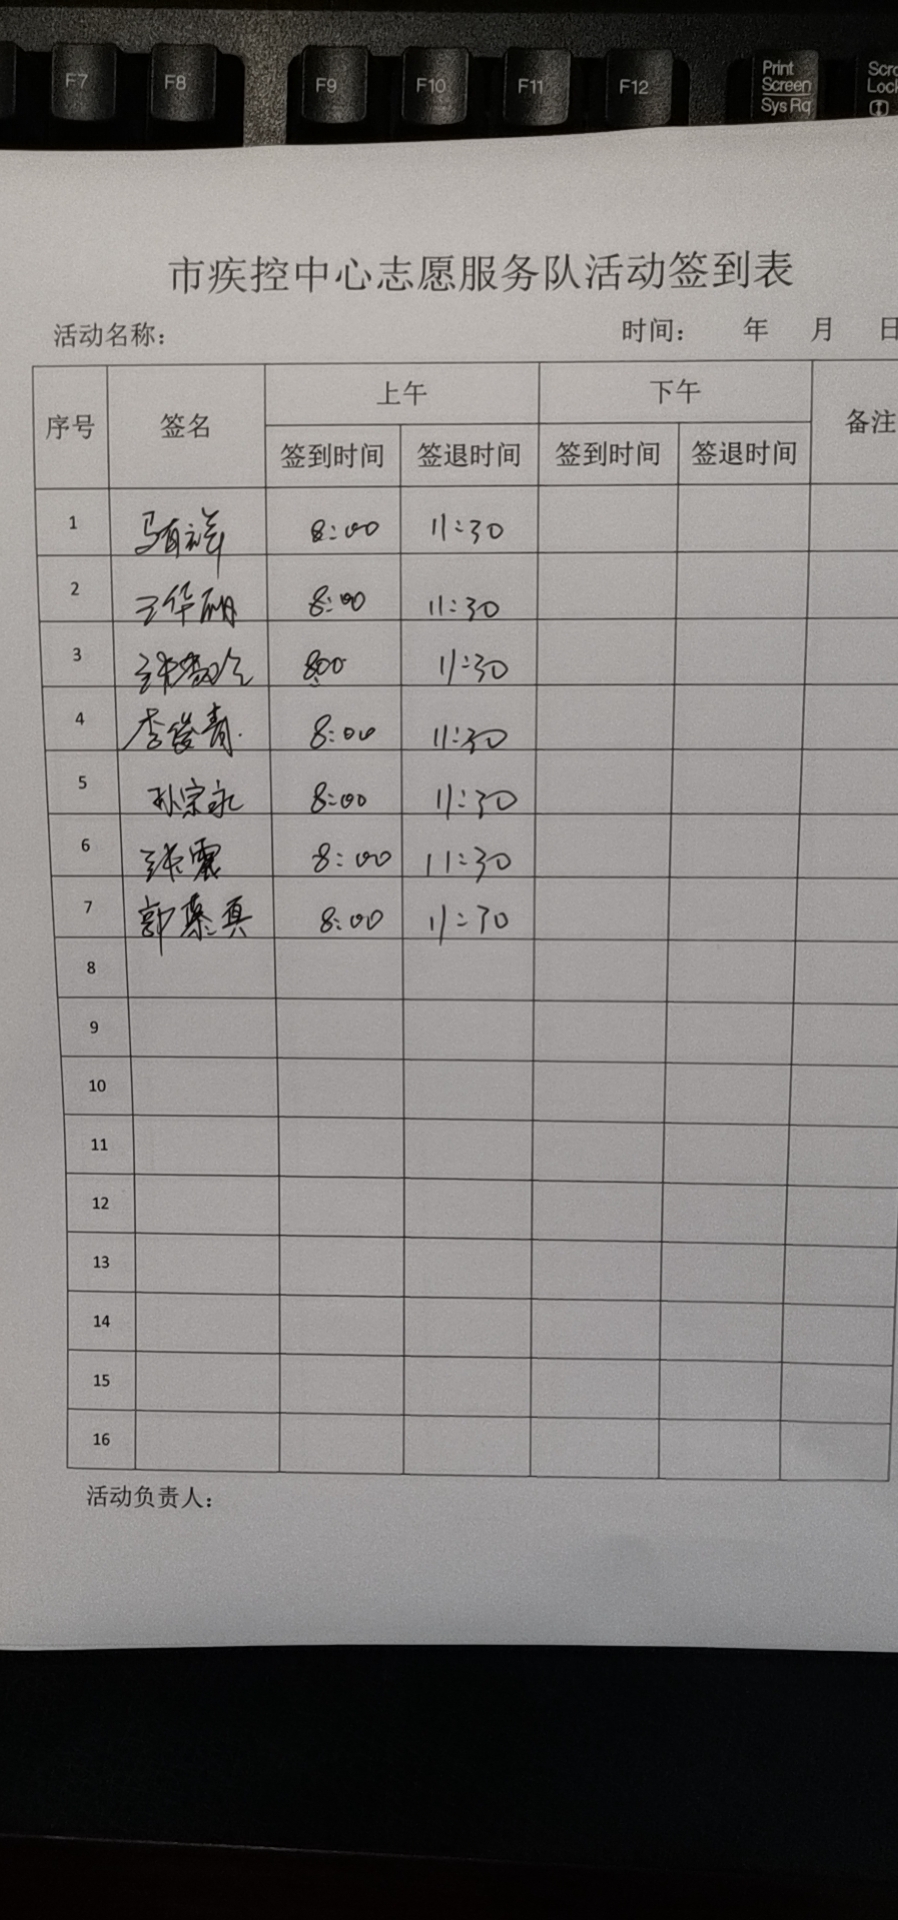 F7 F8 F9 F10 F11 F12 Print Screen Sys Rq Scro Lock
市疾控中心志愿服务队活动签到表
活动名称: 时间: 年 月 日
序号 签名 上午 下午 备注
签到时间 签退时间 签到时间 签退时间
1 马有祥 8:00 11:30
2 王华丽 8:00 11:30
3 8:00 11:30
4 李俊青 8:00 11:30
5 孙宗永 8:00 11:30
6 张震 8:00 11:30
7 郭慕真 8:00 11:30
8
9
10
11
12
13
14
15
16
活动负责人: